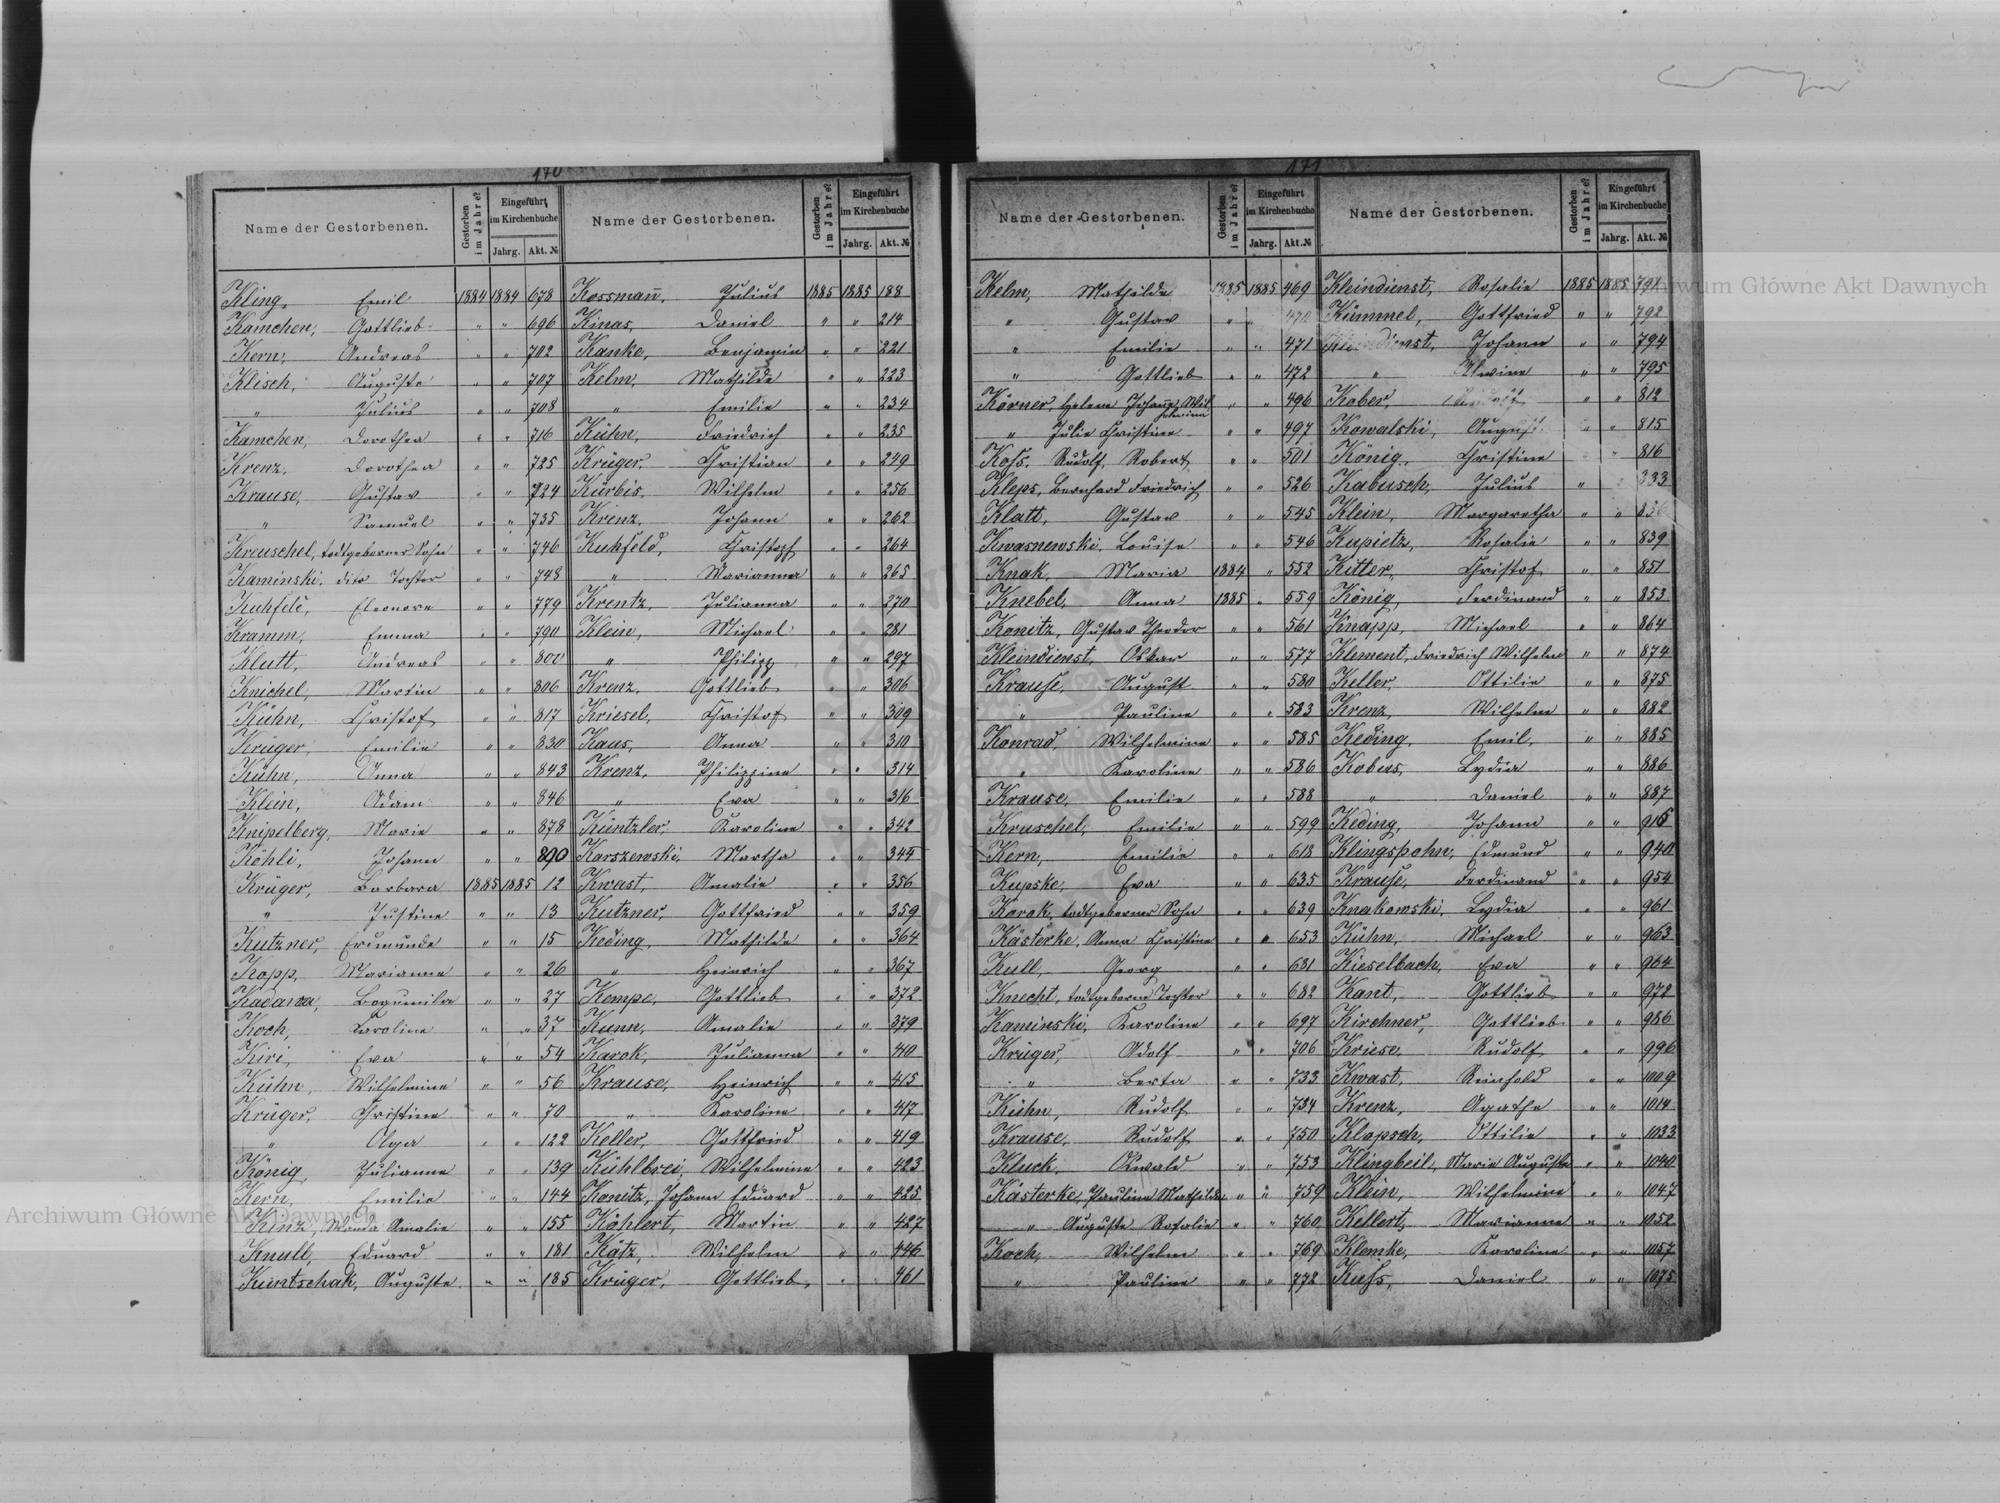 170
Name der Gestorbenen. Gestorben im Jahre? Eingeführt im Kirchenbuche Jahrg. Akt. №
Kling, Emil 1884 1884 678
Kamchen, Gottlieb " " 696
Kern, Andreas " " 702
Klisch, Auguste " " 707
" Julius " " 708
Kamchen, Dorothea " " 716
Krenz, Dorothea " " 725
Krause, Gustav " " 724
" Samuel " " 735
Kreuschel, todtgeborner Sohn " " 746
Kaminski, dito Tochter " " 748
Kuhfeld, Eleonore " " 779
Kramm, Emma " " 790
Klutt, Andreas " " 800
Knichel, Martin " " 806
Kühn, Christof " " 817
Krüger, Emilie " " 830
Kühn, Anna " " 843
Klein, Adam " " 846
Knipelberg, Marie " " 878
Köhli, Johann " " 890
Krüger, Barbara 1885 1885 12
" Justine " " 13
Kutzner, Erdmunde " " 15
Kopp, Marianne " " 26
Bogumila " " 27
Koch, Caroline " " 37
Kiri, Eva " " 54
Kühn, Wilhelmine " " 56
Krüger, Christine " " 70
" Olga " " 122
König, Julianne " " 139
Kern, Emilie " " 144
Kinz, Wanda Amalie " " 155
Knull, Eduard " " 181
Kuntschak, Auguste " " 185
Name der Gestorbenen. Gestorben im Jahre? Eingeführt im Kirchenbuche Jahrg. Akt. №
Kossmann, Julius 1885 1885 188
Kinas, Daniel " " 214
Kanke, Benjamin " " 221
Kelm, Mathilde " " 223
" Emilie " " 234
Kühn, Friedrich " " 235
Krüger, Christian " " 249
Kürbis, Wilhelm " " 256
Krenz, Johann " " 262
Kuhfeld, Christoph " " 264
" Marianna " " 265
Krentz, Julianna " " 270
Klein, Michael " " 281
" Philipp " " 297
Krenz, Gottlieb " " 306
Kriesel, Christof " " 309
Kaus, Anna " " 310
Krenz, Philippine " " 314
" Eva " " 316
Küntzler, Karoline " " 342
Karszewski, Martha " " 344
Kwast, Amalie " " 356
Kutzner, Gottfried " " 359
Keding, Mathilde " " 364
" Heinrich " " 367
Kempe, Gottlieb " " 372
Kunn, Amalie " " 379
Karok, Julianna " " 410
Krause, Heinrich " " 415
" Karoline " " 417
Keller, Gottfried " " 419
Kühlbrei, Wilhelmine " " 423
Konitz, Johann Eduard " " 425
Köhlert, Martin " " 427
Kätz, Wilhelm " " 446
Krüger, Gottlieb " " 461
171
Name der Gestorbenen. Gestorben im Jahre? Eingeführt im Kirchenbuche Jahrg. Akt. №
Kelm, Mathilde 1885 1885 469
" Gustav " " 470
" Emilie " " 471
" Gottlieb " " 472
Körner, Helene Johanne Wilhelmine " " 496
" Julie Christine " " 497
Koss, Rudolf Robert " " 501
Kleps, Bernhard Friedrich " " 526
Klatt, Gustav " " 545
Kwasnewski, Louise " " 546
Knak, Maria 1884 " 552
Knebel, Anna 1885 " 559
Konitz, Gustav Theodor " " 561
Kleindienst, Oskar " " 577
Krause, August " " 580
" Pauline " " 583
Konrad, Wilhelmine " " 585
" Karoline " " 586
Krause, Emilie " " 588
Kruschel, Emilie " " 599
Kern, Emilie " " 618
Kupske, Eva " " 635
Karok, todtgeborner Sohn " " 639
Kästerke, Anna Christine " " 653
Kull, Georg " " 681
Knecht, todtgeborne Tochter " " 682
Kaminski, Karoline " " 697
Krüger, Adolf " " 706
" Berta " " 733
Kühn, Rudolf " " 734
Krause, Rudolf " " 750
Kluck, Oswald " " 753
Kästerke, Pauline Mathilde " " 759
" Auguste Rosalie " " 760
Koch, Wilhelm " " 769
" Pauline " " 772
Name der Gestorbenen. Gestorben im Jahre? Eingeführt im Kirchenbuche Jahrg. Akt. №
Kleindienst, Rosalie 1885 1885 791
Kümmel, Gottfried " " 792
Johann " " 794
" Alwine " " 795
Kober, " " 812
Kowalski, August " " 815
König, Christine " " 816
Kabusch, Julius " " 833
Klein, Margaretha " "
Kupietz, Rosalie " " 839
Kitter, Christof " " 851
König, Ferdinand " " 853
Knapp, Michael " " 864
Klement, Friedrich Wilhelm " " 874
Keller, Ottilie " " 875
Krenz, Wilhelm " " 882
Keding, Emil, " " 885
Kobus, Lydia " " 886
" Daniel " " 887
Keding, Johann " " 915
Klingspohn, Edmund " " 940
Krause, Ferdinand " " 954
Knakowski, Lydia " " 961
Kühn, Michael " " 963
Kieselbach, Eva " " 964
Kant, Gottlieb " " 972
Kirchner, Gottlieb " " 986
Kriese, Rudolf " " 996
Kwast, Reinhold " " 1009
Krenz, Agathe " " 1014
Klapsch, Ottilie " " 1033
Klingbeil, Marie Auguste " " 1040
Klein, Wilhelmine " " 1047
Kellert, Marianne " " 1052
Klemke, Karoline " " 1057
Kuss, Daniel " " 1075
Archiwum Główne Akt Dawnych
Archiwum Główne Akt Dawnych